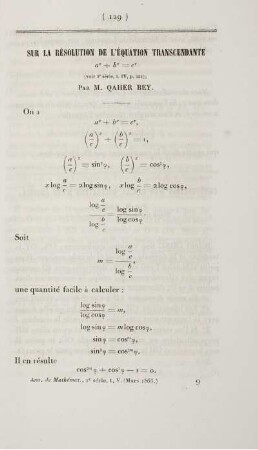 ( 129 )
SUR LA RÉSOLUTION DE L'ÉQUATION TRANSCENDANTE
aˣ + bˣ = cˣ
(voir 2ᵉ série, t. IV, p. );
PAR M. QAHER BEY.
On a
aˣ + bˣ = cˣ,
(a/c)ˣ + (b/c)ˣ = 1,
(a/c)ˣ = sin²φ, (b/c)ˣ = cos²φ,
x log a/c = 2 log sin φ, x log b/c = 2 log cos φ,
log a/c / log b/c = log sin φ / log cos φ.
Soit
m = log a/c / log b/c,
une quantité facile à calculer :
log sin φ / log cos φ = m,
log sin φ = m log cos φ,
sin φ = cosᵐφ,
sin²φ = cos²ᵐφ.
Il en résulte
cos²ᵐφ + cos²φ − 1 = 0,
Ann. de Mathémat., 2ᵉ série, t. V. (Mars 1866.) 9